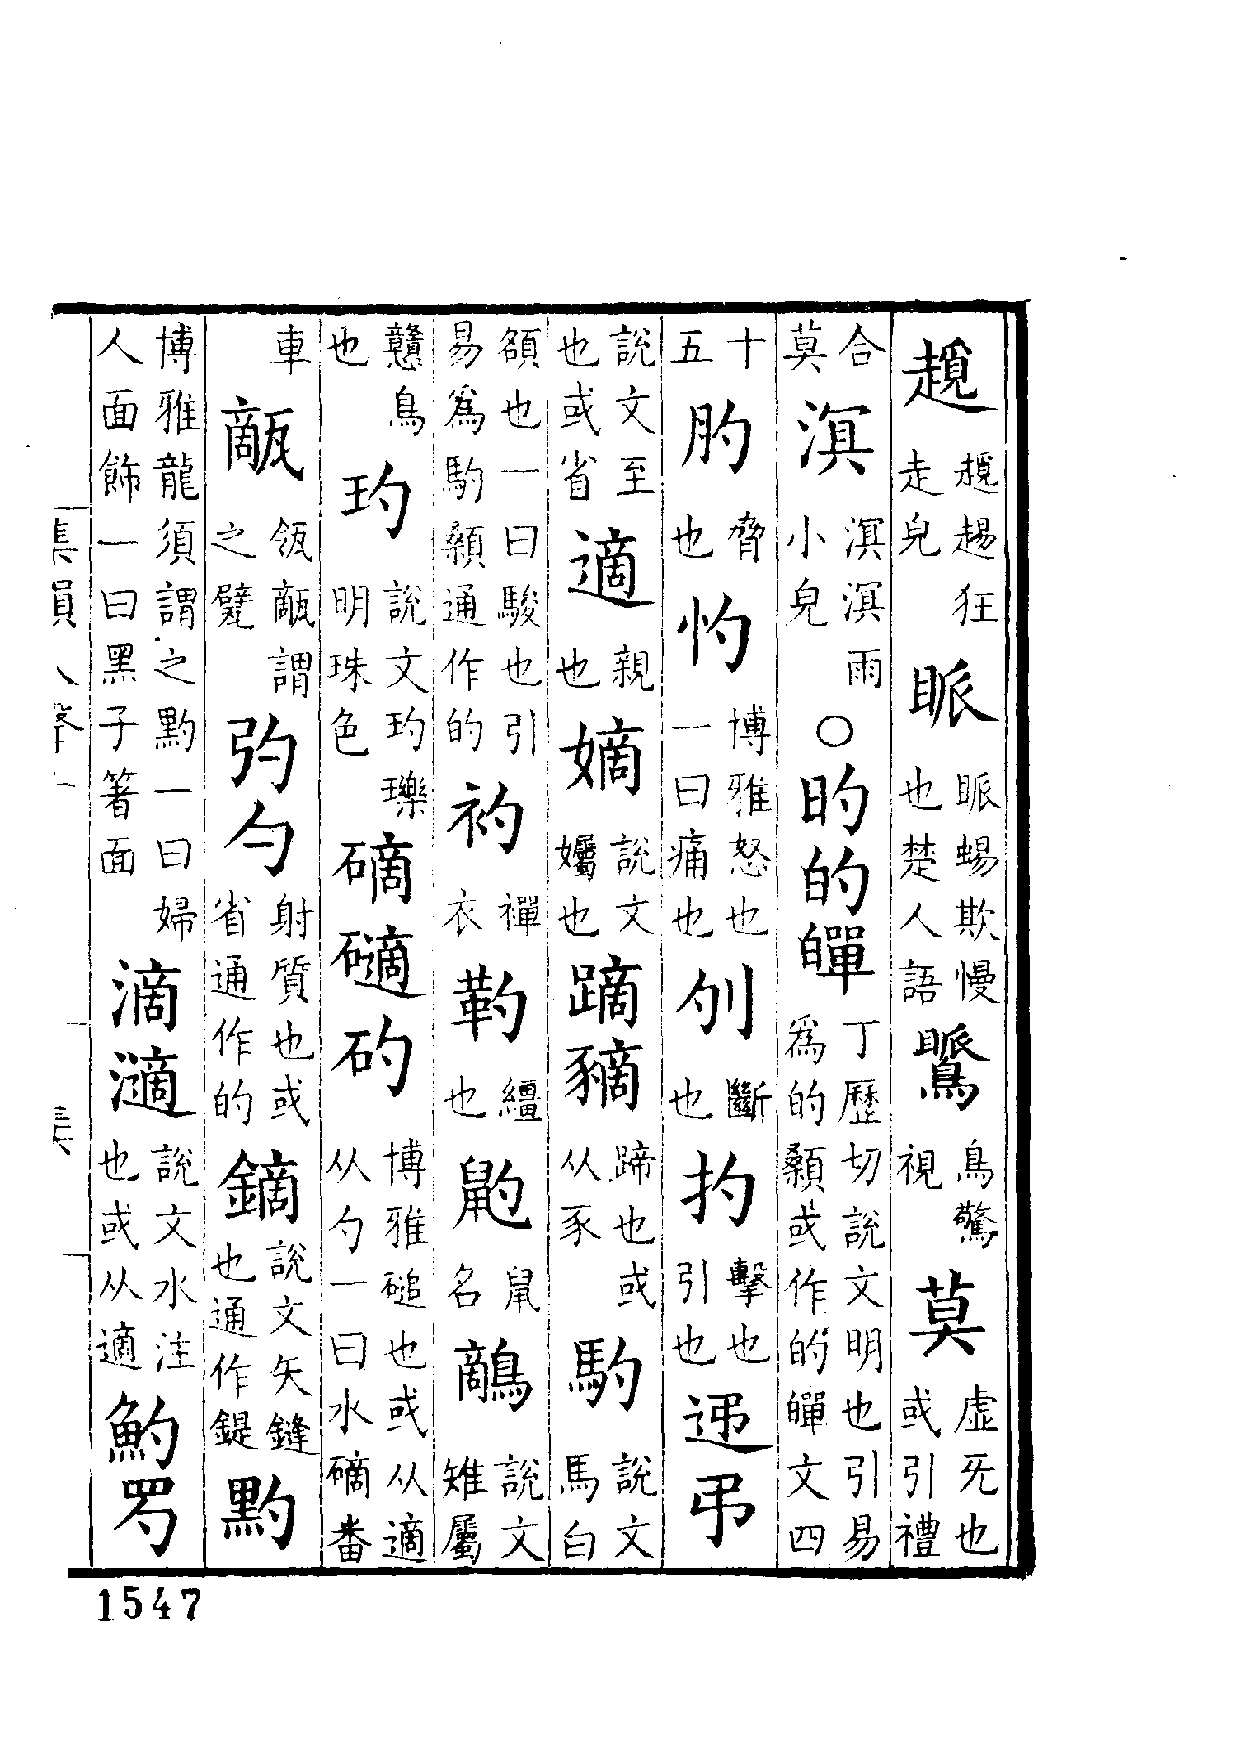 趧趧踼狂走皃䀵䀵蜴欺慢也楚人語鷢鳥驚視莫虛无也或引禮
合莫溟溟溟雨小皃○旳的皪丁歷切說文明也引易爲的顙或作的皪文四
十五肑脅也忄勺博雅怒也一曰痛也刌斷也扚擊也引也迊弔
說文至也或省適親也嫡說文孎也蹢豴蹄也或从豕馰說文馬白
頟也一曰駿也引易爲馰顙通作的袀禪衣靮繮也鼩鼠名鸐說文雉屬
戇鳥也玓說文玓瓅明珠色磝礂矵博雅磓也或从適从勺一曰水磝番
車甋瓴甋謂之甓弡勺射質也或省通作的鏑說文矢鏠也通作鍉黓
博雅龍須謂之黓一曰婦人面飾一曰黑子著面滴㵁說文水注也或从適魡䍘
集韻入聲十
集
1547